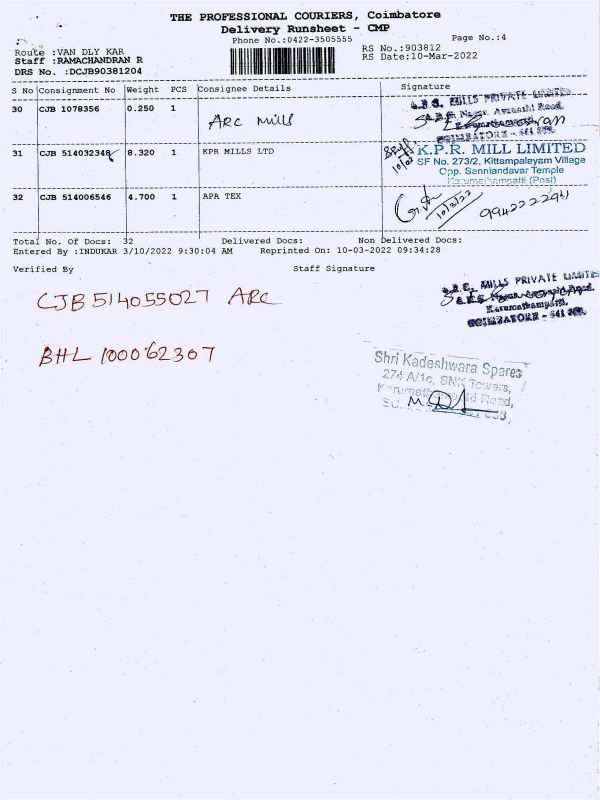 THE PROFESSIONAL COURIERS, Coimbatore
Delivery Runsheet - CMP
Phone No.:0422-3505555
Page No.:4
Route :VAN DLY KAR
RS No.:903812
Staff :RAMACHANDRAN R
RS Date:10-Mar-2022
DRS No. :DCJB90381204
S No Consignment No Weight PCS Consignee Details Signature
30 CJB 1078356 0.250 1 ARC Mills
MILLS PRIVATE LIMITED
COIMBATORE - 641
31 CJB 514032348 8.320 1 KPR MILLS LTD
K.P.R. MILL LIMITED
SF No. 273/2, Kittampaleyam Village
Opp. Senniandavar Temple
Karumathampatti (Post)
32 CJB 514006546 4.700 1 APA TEX
10/3/22
Total No. Of Docs: 32 Delivered Docs: Non Delivered Docs:
Entered By :INDUKAR 3/10/2022 9:30:04 AM Reprinted On: 10-03-2022 09:34:28
Verified By Staff Signature
CJB 514055027 ARC
MILLS PRIVATE LIMITED
Karumathampatti,
COIMBATORE - 641
BHL 100062307
Shri Kadeshwara Spares
274 A/1c, SNK Towers,
Road,